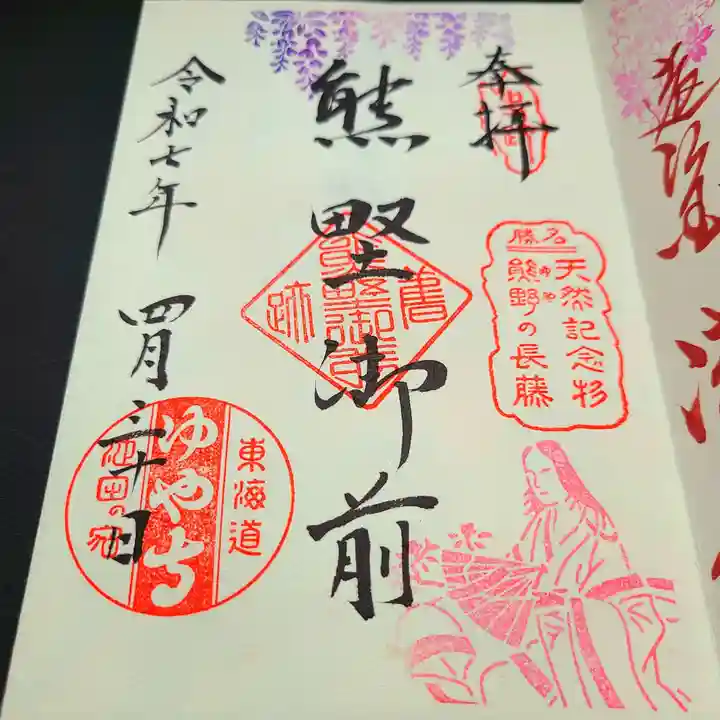 奉拝
名勝
天然記念杉
熊野の長藤
熊野御前
書跡
令和七年
四月三十日
東海道
ゆや寺
池田の宿